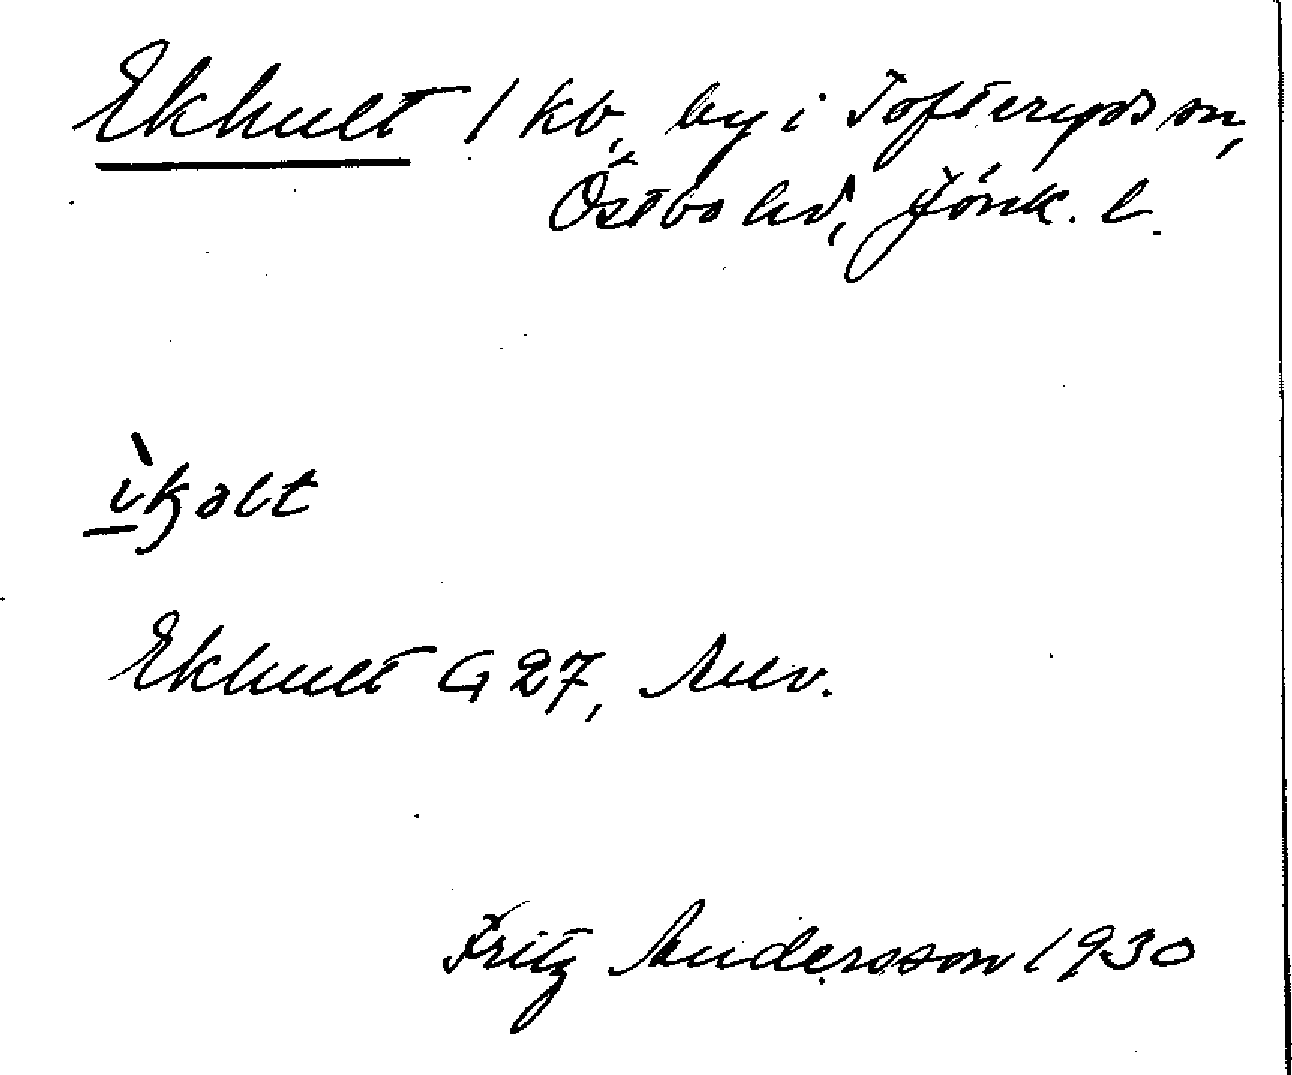 Ekhult 1 kb, by i Tofteryds sn,
Östbo hd, Jönk. l.
ìkolt
Ekhult G 27,
Fritz Andersson 1930